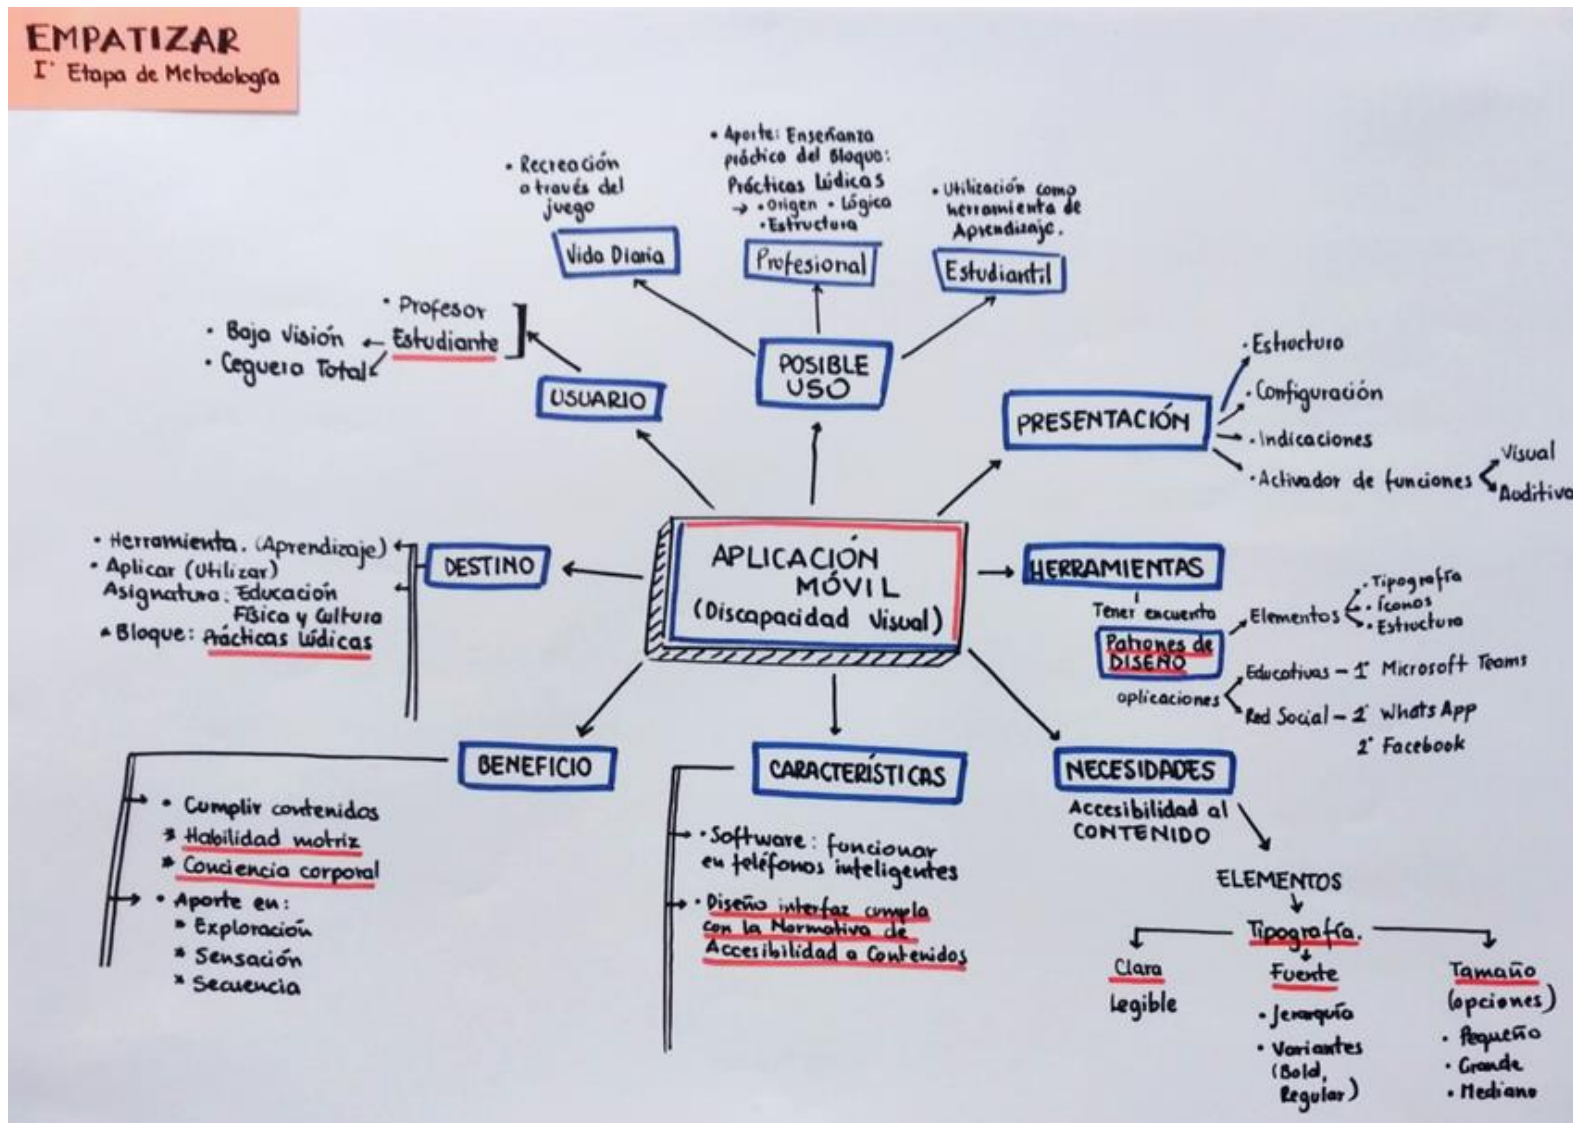 EMPATIZAR
I° Etapa de Metodología
• Recreación
a través del
juego
Vida Diaria
• Aporte: Enseñanza
práctica del Bloque:
Prácticas Lúdicas
→ • Origen • Lógica
• Estructura
Profesional
• Utilización como
herramienta de
Aprendizaje.
Estudiantil
POSIBLE
USO
• Profesor
Estudiante
• Baja Visión
• Ceguera Total
USUARIO
PRESENTACIÓN
• Estructura
• Configuración
• Indicaciones
• Activador de funciones
Visual
Auditivo
APLICACIÓN
MÓVIL
(Discapacidad Visual)
DESTINO
• Herramienta. (Aprendizaje)
• Aplicar (Utilizar)
Asignatura: Educación
Física y Cultura
* Bloque: Prácticas Lúdicas
HERRAMIENTAS
Tener encuenta
Patrones de
DISEÑO
Elementos
• Tipografía
• Íconos
• Estructura
aplicaciones
Educativas – 1° Microsoft Teams
Red Social – 2° WhatsApp
2° Facebook
BENEFICIO
• Cumplir contenidos
* Habilidad motriz
* Conciencia corporal
• Aporte en:
* Exploración
* Sensación
* Secuencia
CARACTERÍSTICAS
• Software: funcionar
en teléfonos inteligentes
• Diseño interfaz cumpla
con la Normativa de
Accesibilidad a Contenidos
NECESIDADES
Accesibilidad al
CONTENIDO
ELEMENTOS
Tipografía.
Clara
Legible
Fuente
• Jerarquía
• Variantes
(Bold,
Regular)
Tamaño
(opciones)
• Pequeño
• Grande
• Mediano